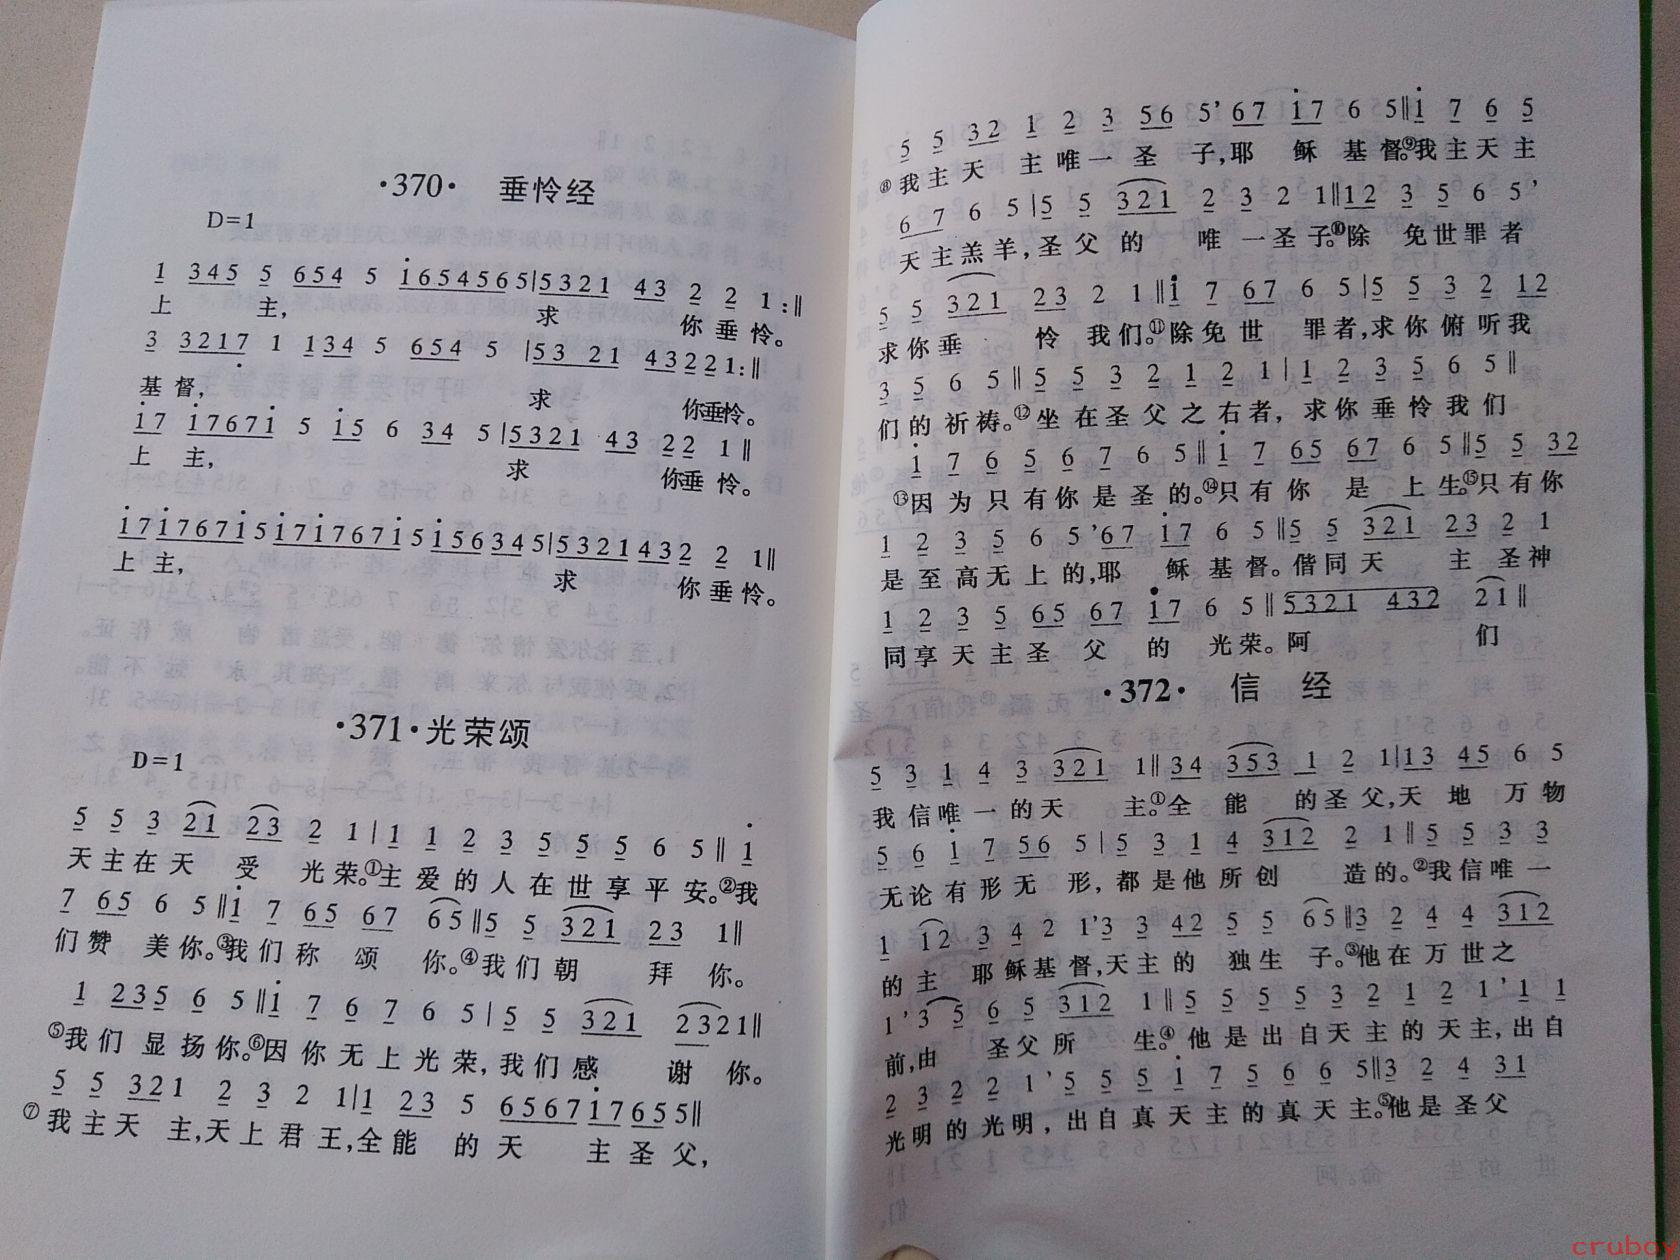 ·370· 垂怜经
D=1
1 345 5 654 5 1654565|5321 43 2 2 1:‖
上 主, 求 你 垂 怜。
3 3217 1 134 5 654 5 |53 21 43221:‖
基 督, 求 你垂怜。
17 17671 5 15 6 34 5|5321 43 22 1‖
上 主, 求 你垂 怜。
17176715171767715156345|5321432 2 1‖
上 主, 求 你 垂 怜。
·371·光荣颂
D=1
5 5 3 21 23 2 1|1 1 2 3 5 5 5 6 5‖1
天主在天 受 光荣。①主 爱 的 人 在 世 享 平 安。②我
7 65 6 5‖1 7 65 67 65‖5 5 321 23 1‖
们 赞 美 你。③我 们 称 颂 你。④我 们 朝 拜 你。
1 235 6 5‖1 7 6 7 6 5|5 5 321 2321‖
⑤我 们 显 扬 你。⑥因 你 无 上 光 荣, 我 们 感 谢 你。
5 5 321 2 3 2 1|1 23 5 656717655‖
⑦我 主 天 主,天 上 君 王,全 能 的 天 主 圣 父,
5 5 32 1 2 3 56 5’67 17 6 5‖1 7 6 5
⑧我 主 天 主 唯 一 圣 子,耶 稣 基 督。⑨我 主 天 主
67 6 5|5 5 321 2 3 2 1‖12 3 5 6 5’
天主羔羊,圣 父 的 唯 一圣子。⑩除 免世罪者
5 5 321 23 2 1‖1 7 67 6 5|5 5 3 2 12
求 你 垂 怜 我们。⑪除免世 罪者,求你俯听我
3 5 6 5‖5 5 3 2 1 2 1|1 2 3 5 6 5‖
们的祈祷。⑫坐在圣父之右者, 求你垂怜我们
1 7 6 5 6 7 6 5‖1 7 65 67 6 5‖5 5 32
⑬因为只有你是圣的。⑭只有你 是 上生。⑮只有你
1 2 3 5 6 5’67 17 6 5‖5 5 321 23 2 1
是 至 高 无 上 的,耶 稣 基 督。偕同天 主 圣神
1 2 3 5 65 67 17 6 5‖5321 432 21‖
同享天主圣 父 的 光荣。阿 们
·372· 信 经
5 3 1 4 3 321 1‖34 353 1 2 1|13 45 6 5
我信唯一的天 主。①全 能 的圣父,天 地 万物
5 6 1 7 56 5|5 3 1 4 312 2 1‖5 5 3 3
无论有形无 形, 都是他所创 造的。②我信唯一
1 12 3 4 2 1’3 3 42 5 5 65‖3 2 4 4 312
的主 耶稣基督,天主的 独生 子。③他在万世之
1’3 5 6 5 312 1‖5 5 5 5 3 2 1 2 1’1 1
前,由 圣父所 生。④他是出自天主的天主,出自
2 3 2 2 1’5 5 5 1 7 5 6 6 5‖3 2 4 31
光明的光明, 出自真天主的真天主。⑤他是圣父
cruboy